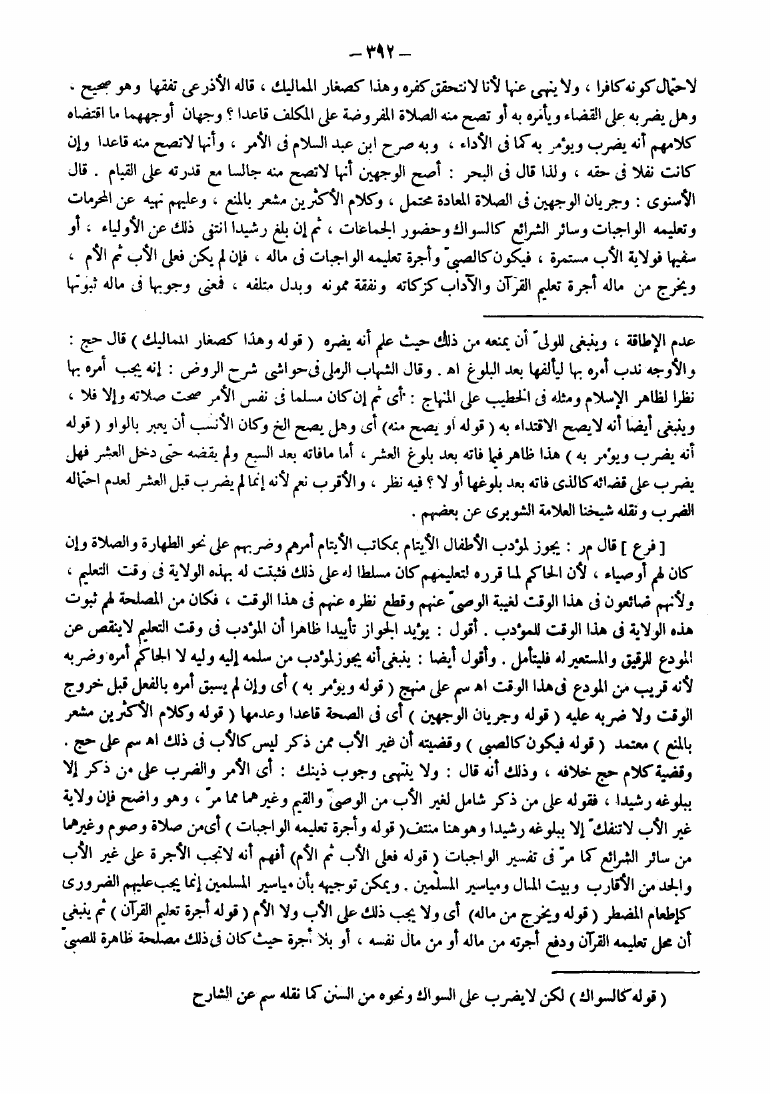 — ٣٩٢ —
لاحتمال كونه كافرا ، ولا ينهى عنها لأنا لا نتحقق كفره وهذا كصغار المماليك ، قاله الأذرعى تفقها وهو صحيح ،
وهل يضربه على القضاء ويأمره به أو تصح منه الصلاة المفروضة على المكلف قاعدا ؟ وجهان أوجههما ما اقتضاه
كلامهم أنه يضرب ويؤمر به كما فى الأداء ، وبه صرح ابن عبد السلام فى الأمر ، وأنها لاتصح منه قاعدا وإن
كانت نفلا فى حقه ، ولذا قال فى البحر : أصح الوجهين أنها لاتصح منه جالسا مع قدرته على القيام . قال
الأسنوى : وجريان الوجهين فى الصلاة المعادة محتمل ، وكلام الأكثرين مشعر بالمنع ، وعليهم نهيه عن المحرمات
وتعليمه الواجبات وسائر الشرائع كالسواك وحضور الجماعات ، ثم إن بلغ رشيدا انتفى ذلك عن الأولياء ، أو
سفيها فولاية الأب مستمرة ، فيكون كالصبىّ وأجرة تعليمه الواجبات فى ماله ، فإن لم يكن فعلى الأب ثم الأم ،
ويخرج من ماله أجرة تعليم القرآن والآداب كزكاته ونفقة ممونه وبدل متلفه ، فمعنى وجوبها فى ماله ثبوتها
عدم الإطاقة ، وينبغى للولىّ أن يمنعه من ذلك حيث علم أنه يضره ( قوله وهذا كصغار المماليك ) قال حج :
والأوجه ندب أمره بها ليألفها بعد البلوغ اهـ . وقال الشهاب الرملى فى حواشى شرح الروض : إنه يجب أمره بها
نظرا لظاهر الإسلام ومثله فى الخطيب على المنهاج : أى ثم إن كان مسلما فى نفس الأمر صحت صلاته وإلا فلا ،
وينبغى أيضا أنه لايصح الاقتداء به ( قوله أو يصح منه) أى وهل يصح الخ وكان الأنسب أن يعبر بالواو ( قوله
أنه يضرب ويؤمر به ) هذا ظاهر فيما فاته بعد بلوغ العشر ، أما مافاته بعد السبع ولم يقضه حتى دخل العشر فهل
يضرب على قضائه كالذى فاته بعد بلوغها أو لا ؟ فيه نظر ، والأقرب نعم لأنه إنما لم يضرب قبل العشر لعدم احتماله
الضرب ونقله شيخنا العلامة الشوبرى عن بعضهم .
[ فرع ] قال مر : يجوز لمؤدب الأطفال الأيتام بمكاتب الأيتام أمرهم وضربهم على نحو الطهارة والصلاة وإن
كان لهم أوصياء ، لأن الحاكم لما قرره لتعليمهم كان مسلطا له على ذلك فثبتت له بهذه الولاية فى وقت التعليم ،
ولأنهم ضائعون فى هذا الوقت لغيبة الوصىّ عنهم وقطع نظره عنهم فى هذا الوقت ، فكان من المصلحة لهم ثبوت
هذه الولاية فى هذا الوقت للمؤدب . أقول : يؤيد الجواز تأييدا ظاهرا أن المؤدب فى وقت التعليم لاينقص عن
المودع للرقيق والمستعير له فليتأمل . وأقول أيضا : ينبغى أنه يجوز لمؤدب من سلمه إليه وليه لا الحاكم أمره وضربه
لأنه قريب من المودع فى هذا الوقت اهـ سم على منهج ( قوله ويؤمر به ) أى وإن لم يسبق أمره بالفعل قبل خروج
الوقت ولا ضربه عليه ( قوله وجريان الوجهين ) أى فى الصحة قاعدا وعدمها ( قوله وكلام الأكثرين مشعر
بالمنع ) معتمد ( قوله فيكون كالصبى ) وقضيته أن غير الأب ممن ذكر ليس كالأب فى ذلك اهـ سم على حج .
وقضية كلام حج خلافه ، وذلك أنه قال : ولا ينتهى وجوب ذينك : أى الأمر والضرب على من ذكر إلا
ببلوغه رشيدا ، فقوله على من ذكر شامل لغير الأب من الوصىّ والقيم وغيرهما مما مرّ ، وهو واضح فإن ولاية
غير الأب لاتنفك إلا ببلوغه رشيدا وهو هنا منتف( قوله وأجرة تعليمه الواجبات ) أى من صلاة وصوم وغيرهما
من سائر الشرائع كما مرّ فى تفسير الواجبات ( قوله فعلى الأب ثم الأم) أفهم أنه لاتجب الأجرة على غير الأب
والجد من الأقارب وبيت المال ومياسير المسلمين . ويمكن توجيهه بأن مياسير المسلمين إنما يجب عليهم الضرورى
كإطعام المضطر ( قوله ويخرج من ماله) أى ولا يجب ذلك على الأب ولا الأم ( قوله أجرة تعليم القرآن ) ثم ينبغى
أن محل تعليمه القرآن ودفع أجرته من ماله أو من مال نفسه ، أو بلا أجرة حيث كان فى ذلك مصلحة ظاهرة للصبىّ
( قوله كالسواك ) لكن لايضرب على السواك ونحوه من السنن كما نقله سم عن الشارح